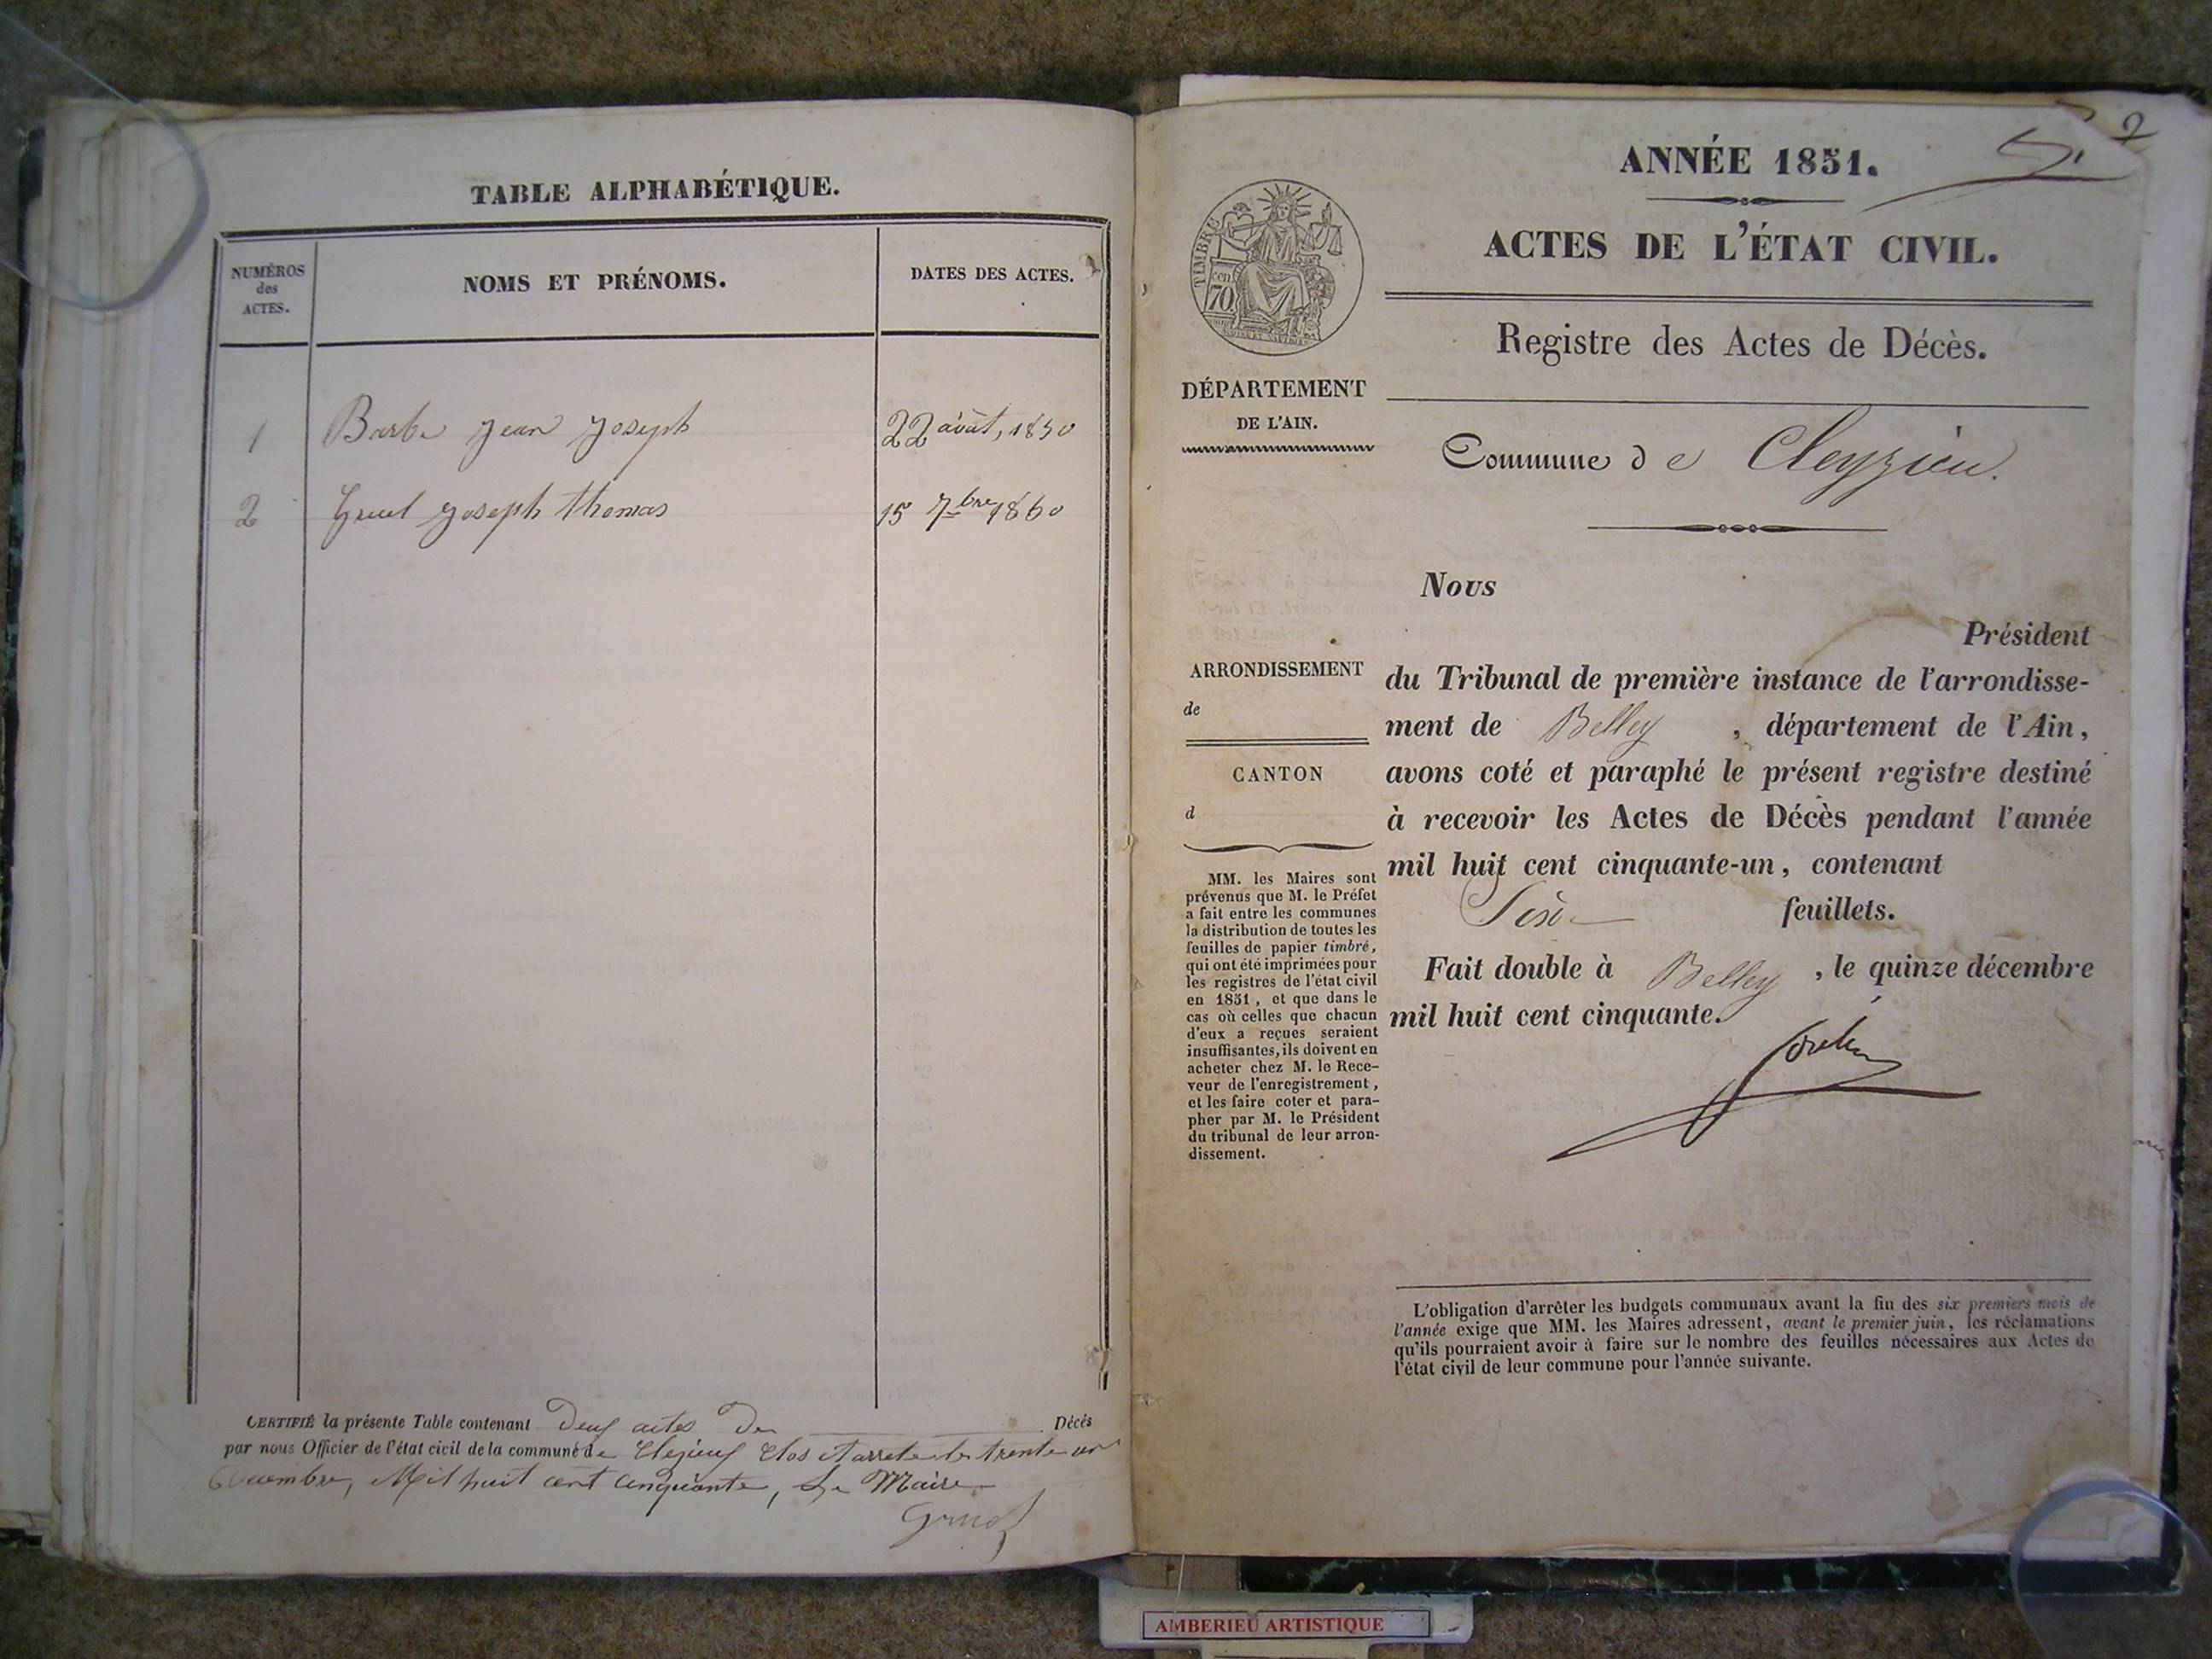 TABLE ALPHABÉTIQUE.
NUMÉROS
des
ACTES.
NOMS ET PRÉNOMS.
DATES DES ACTES.
1 Barbe Jean Joseph 22 août, 1850
2 Joseph thomas 15 7bre 1860
CERTIFIÉ la présente Table contenant Deux actes De Décès
par nous Officier de l'état civil de la commune de Clezieux Clos et arrete le trente un
Décembre, Mil huit cent cinquante, Le Maire
2
ANNÉE 1851.
ACTES DE L'ÉTAT CIVIL.
TIMBRE
cen
70
Registre des Actes de Décès.
DÉPARTEMENT
DE L'AIN.
Commune de Cleyzieu.
Nous
Président
du Tribunal de première instance de l'arrondisse-
ment de Belley , département de l'Ain,
avons coté et paraphé le présent registre destiné
à recevoir les Actes de Décès pendant l'année
mil huit cent cinquante-un, contenant
feuillets.
Fait double à Belley , le quinze décembre
mil huit cent cinquante.
ARRONDISSEMENT
de
CANTON
d
MM. les Maires sont
prévenus que M. le Préfet
a fait entre les communes
la distribution de toutes les
feuilles de papier timbré,
qui ont été imprimées pour
les registres de l'état civil
en 1851, et que dans le
cas où celles que chacun
d'eux a reçues seraient
insuffisantes, ils doivent en
acheter chez M. le Rece-
veur de l'enregistrement,
et les faire coter et para-
pher par M. le Président
du tribunal de leur arron-
dissement.
L'obligation d'arrêter les budgets communaux avant la fin des six premiers mois de
l'année exige que MM. les Maires adressent, avant le premier juin, les réclamations
qu'ils pourraient avoir à faire sur le nombre des feuilles nécessaires aux Actes de
l'état civil de leur commune pour l'année suivante.
AMBERIEU ARTISTIQUE